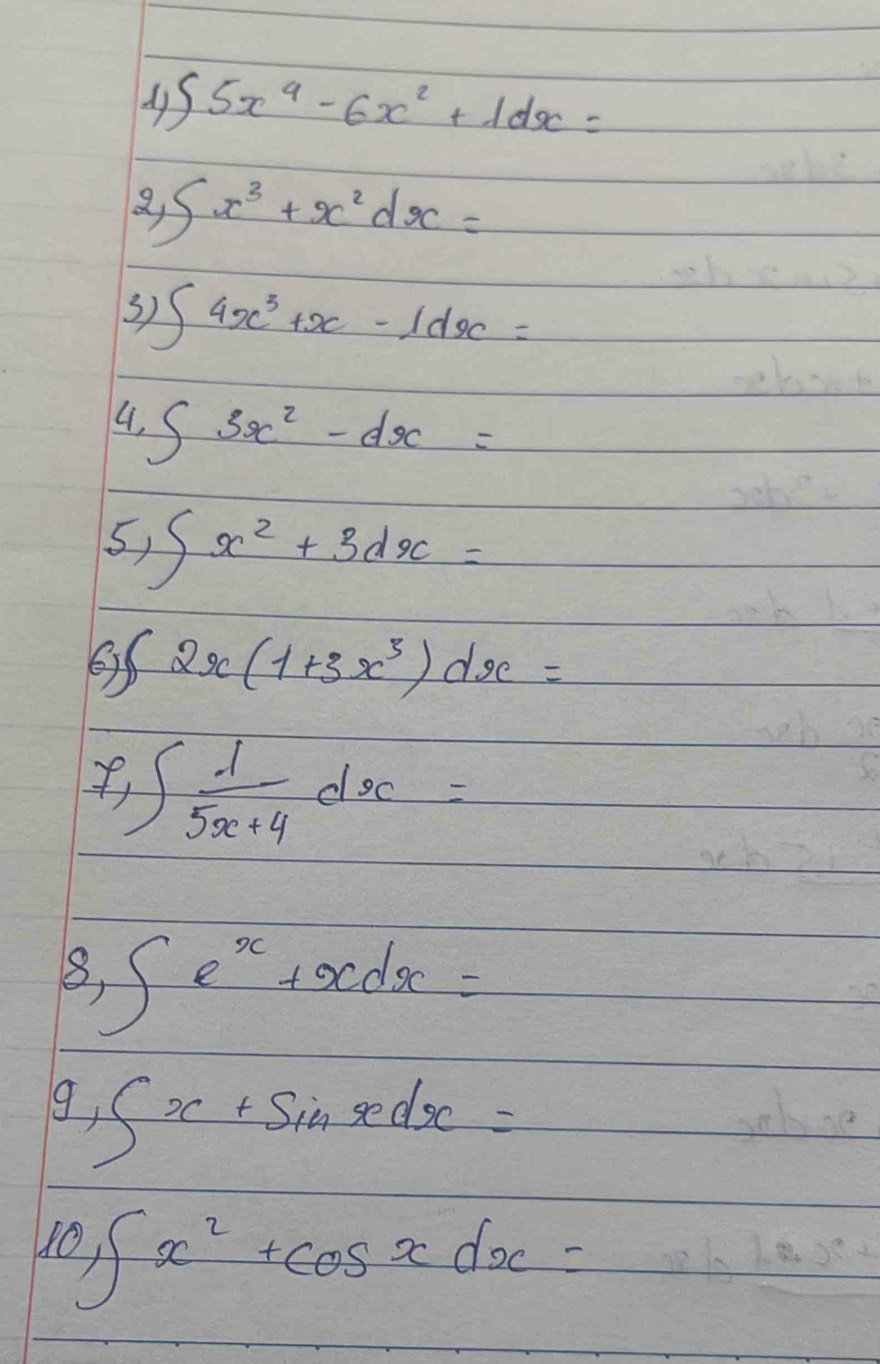 1, ∫ 5x⁴ - 6x² + 1dx =
2, ∫ x³ + x² dx =
3) ∫ 4x³ + x - 1dx =
4, ∫ 3x² - dx =
5, ∫ x² + 3dx =
6, ∫ 2x(1+3x³) dx =
7, ∫ 1/(5x+4) dx =
8, ∫ eˣ + xdx =
9, ∫ x + Sin xdx =
10, ∫ x² + cos x dx =